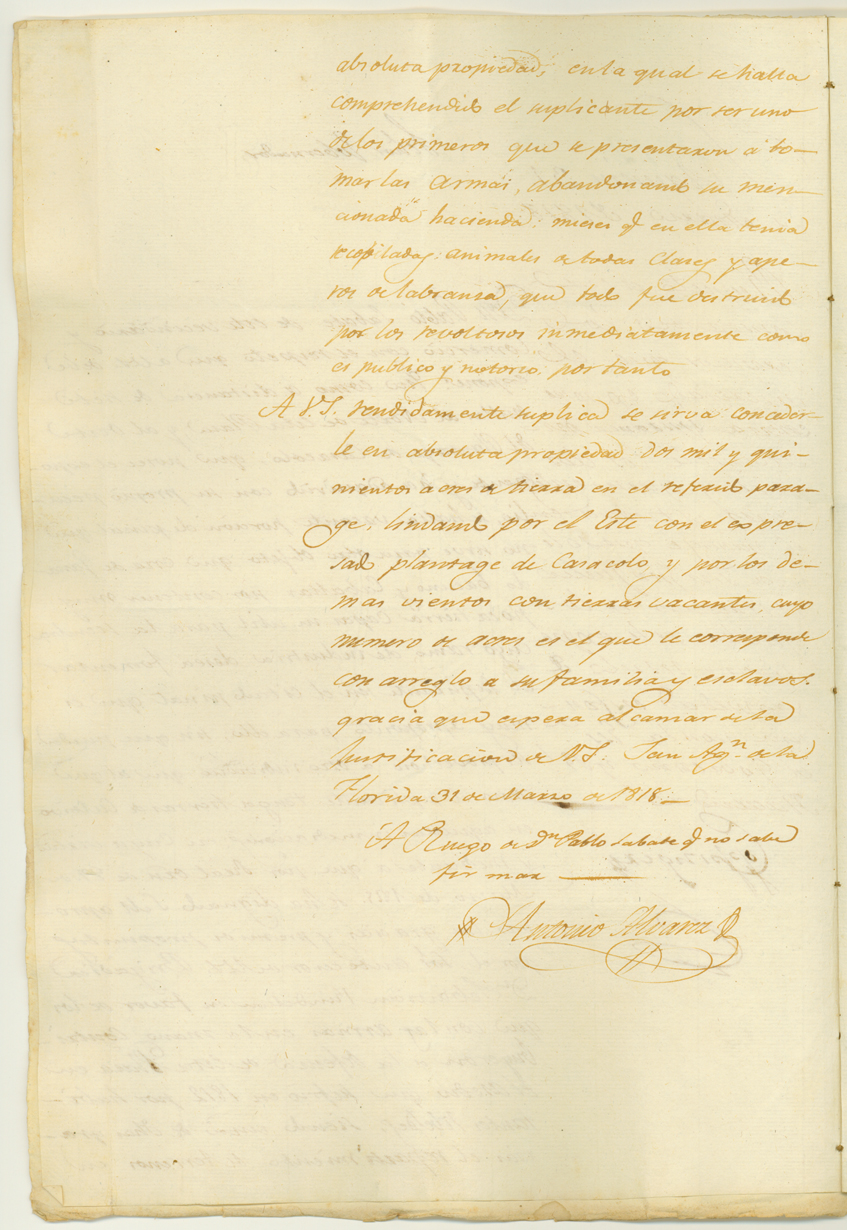 absoluta propiedad, en la qual se halla
comprehendido el suplicante por ser uno
de los primeros que se presentaron á to-
mar las armas, abandonando su men-
cionada hacienda, mieses q̃ en ella tenia
recopiladas, animales de todas Clases y ape-
ros de labranza, que todo fue destruido
por los revoltosos inmediatamente como
es publico y notorio. por tanto
A V.S. rendidamente suplica se sirva conceder-
le en absoluta propiedad dos mil y qui-
nientos acres de tierra en el referido para-
ge, lindando por el Este con el expre-
sado plantage de Casacolo, y por los de-
mas vientos con tierras vacantes, cuyo
numero de acres es el que le corresponde
con arreglo a su familia y esclavos.
gracia que espera alcanzar de la
Justificacion de V.S. San Agn. de la
Florida 31 de Marzo de 1818.
A Ruego de Dn Pablo Sabate q̃ no sabe
firmar
Antonio Alvarez